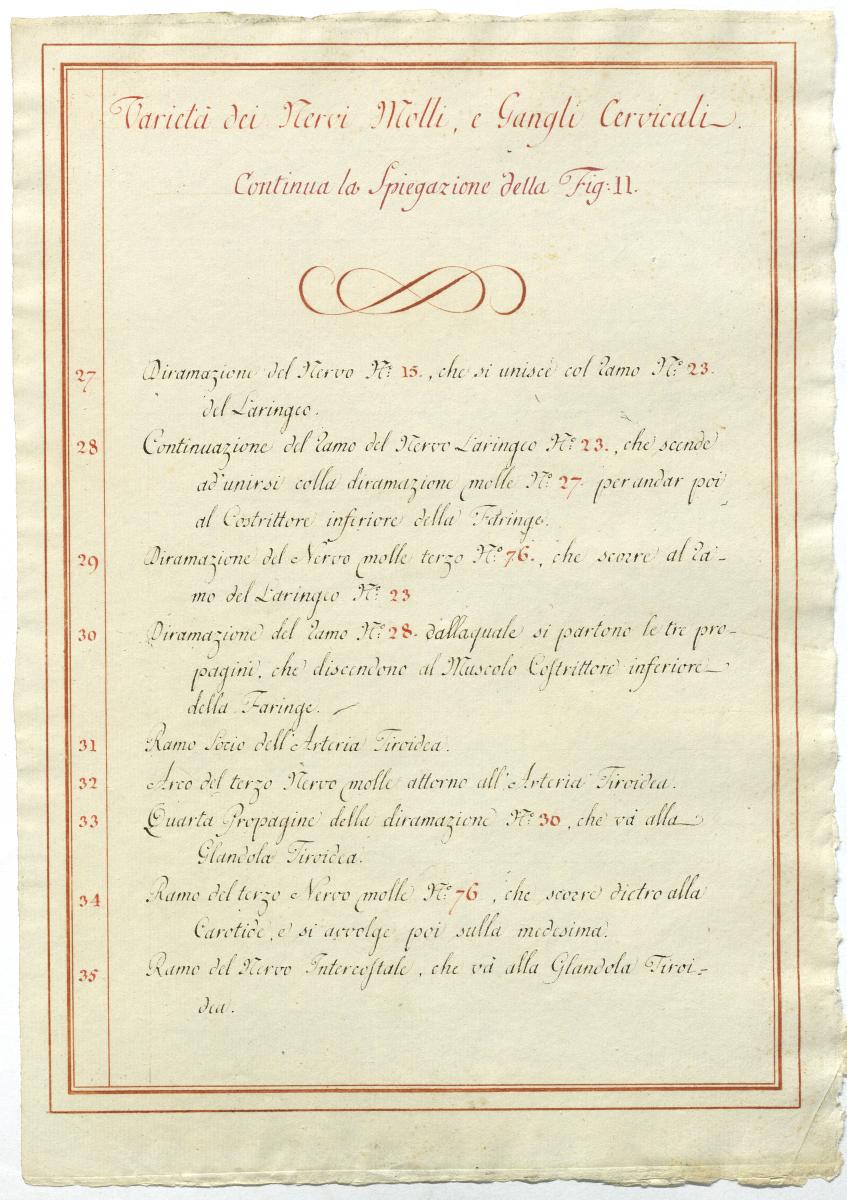 Varietà dei Nervi Molli, e Gangli Cervicali.
Continua la Spiegazione della Fig: II.
27 Diramazione del Nervo N.º 15., che si unisce col Ramo N.º 23.
del Laringeo.
28 Continuazione del Ramo del Nervo Laringeo N.º 23., che scende
ad'unirsi colla diramazione molle N.º 27. per andar poi
al Costrittore inferiore della Faringe.
29 Diramazione del Nervo molle terzo N.º 76., che scorre al Ra-
mo del Laringeo N.º 23
30 Diramazione del Ramo N.º 28. dallaquale si partono le tre pro-
pagini, che discendono al Muscolo Coſtrittore inferiore
della Faringe.
31 Ramo Socio dell'Arteria Tiroidea.
32 Arco del terzo Nervo molle attorno all'Arteria Tiroidea.
33 Quarta Propagine della diramazione N.º 30, che và alla
Glandola Tiroidea.
34 Ramo del terzo Nervo molle N.º 76, che scorre dietro alla
Carotide, e si avvolge poi sulla medesima.
35 Ramo del Nervo Intercoſtale, che và alla Glandola Tiroi-
dea.